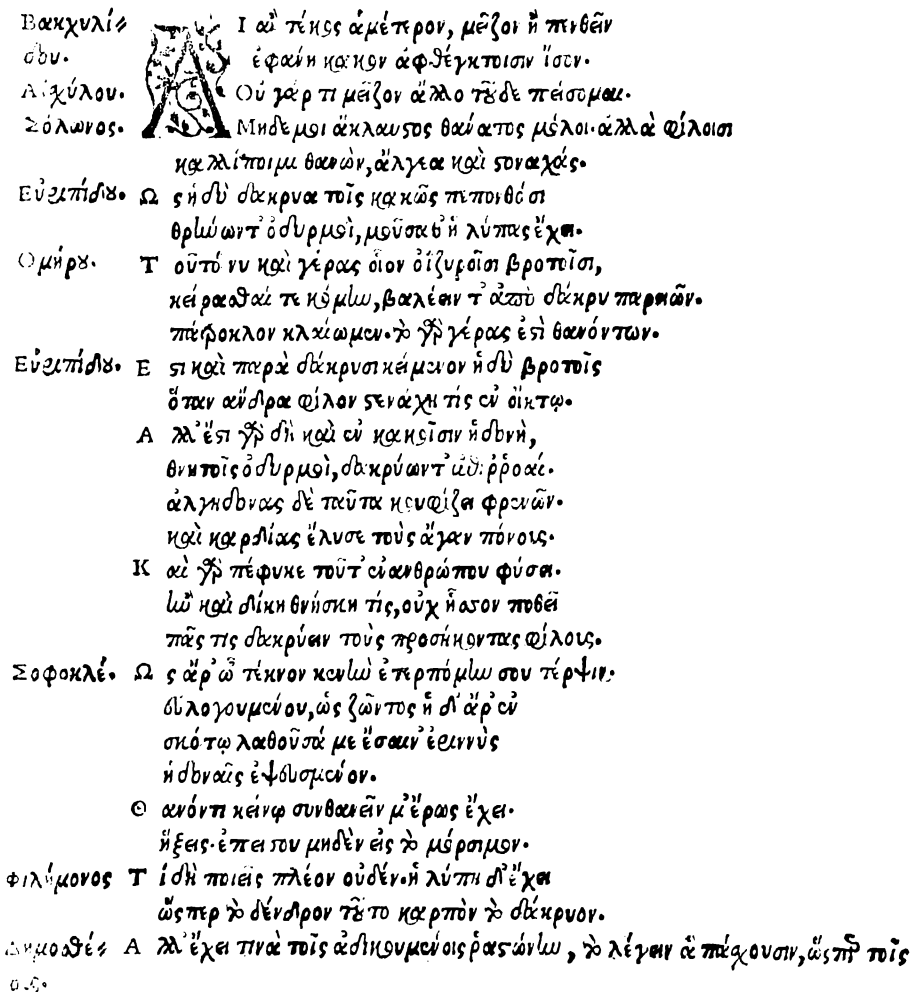 Βακχυλί⸗ ΑΙ αῖ τέκος ἁμέτερον, μεῖζον ἢ πενθεῖν
δου. ἐφαύη κακον ἀφθέγκτοισιν ἶσον.
Αἰχύλου. Οὐ γάρ τι μεῖζον ἄλλο τοῦδε πείσομαι.
Σόλωνος. Μηδέ μοι ἄκλαυστος θανάτος μόλοι. ἀλλὰ φίλοισι
καλλίποιμι θανὼν, ἄλγεα καὶ στοναχάς.
Εὐριπίδου. Ως ἡδὺ δάκρυα τοῖς κακῶς πεπονθόσι
θρήνων τ' ὀδυρμοὶ, μοῦσα θ' ἣ λύπας ἔχει.
Ομήρου. Τοῦτό νυ καὶ γέρας οἷον ὀϊζυροῖσι βροτοῖσι,
κείρασθαί τε κόμην, βαλέειν τ' ἀπὸ δάκρυ παρειῶν.
πάτροκλον κλαίωμεν. τὸ γὰρ γέρας ἐστὶ θανόντων.
Εὐριπίδου. Εστι καὶ παρὰ δάκρυσι κείμενον ἡδὺ βροτοῖς
ὅταν ἄνδρα φίλον στενάχῃ τίς ἐν οἴκτῳ.
Αλλ' ἔστι γὰρ δὴ καὶ ἐν κακοῖσιν ἡδονὴ,
θνητοῖς ὀδυρμοὶ, δακρύων τ' ἐπιῤῥοαί.
ἀλγηδόνας δὲ ταῦτα κουφίζει φρενῶν.
καὶ καρδίας ἔλυσε τοὺς ἄγαν πόνοις.
Και γὰρ πέφυκε τοῦτ' ἐν ἀνθρώπου φύσει.
ἢν καὶ δίκῃ θνήσκῃ τίς, οὐχ ἧσσον ποθεῖ
πᾶς τις δακρύειν τοὺς προσήκοντας φίλοις.
Σοφοκλέ. Ως ἄρ' ὦ τέκνον κενὴν ἐτερπόμην σου τέρψιν.
εὐλογουμένου, ὡς ζῶντος ἡ δ' ἄρ' ἐν
σκότῳ λαθοῦσά με ἔσαιν' ἐριννὺς
ἡδοναῖς ἐψευσμένον.
Θανόντι κείνῳ συνθανεῖν μ' ἔρως ἔχει.
ἥξεις. ἐπείτου μηδὲν εἰς τὸ μόρσιμον.
Φιλήμονος Τί δὴ ποιεῖς πλέον οὐδέν. ἡ λύπη δ' ἔχει
ὥσπερ τὸ δένδρον τοῦτο καρπὸν τὸ δάκρυον.
Δημοσθέ⸗ Αλλ' ἔχει τινὰ τοῖς ἀδικουμένοις ῥαστώνην, τὸ λέγειν ἃ πάσχουσιν, ὥσπερ τοῖς